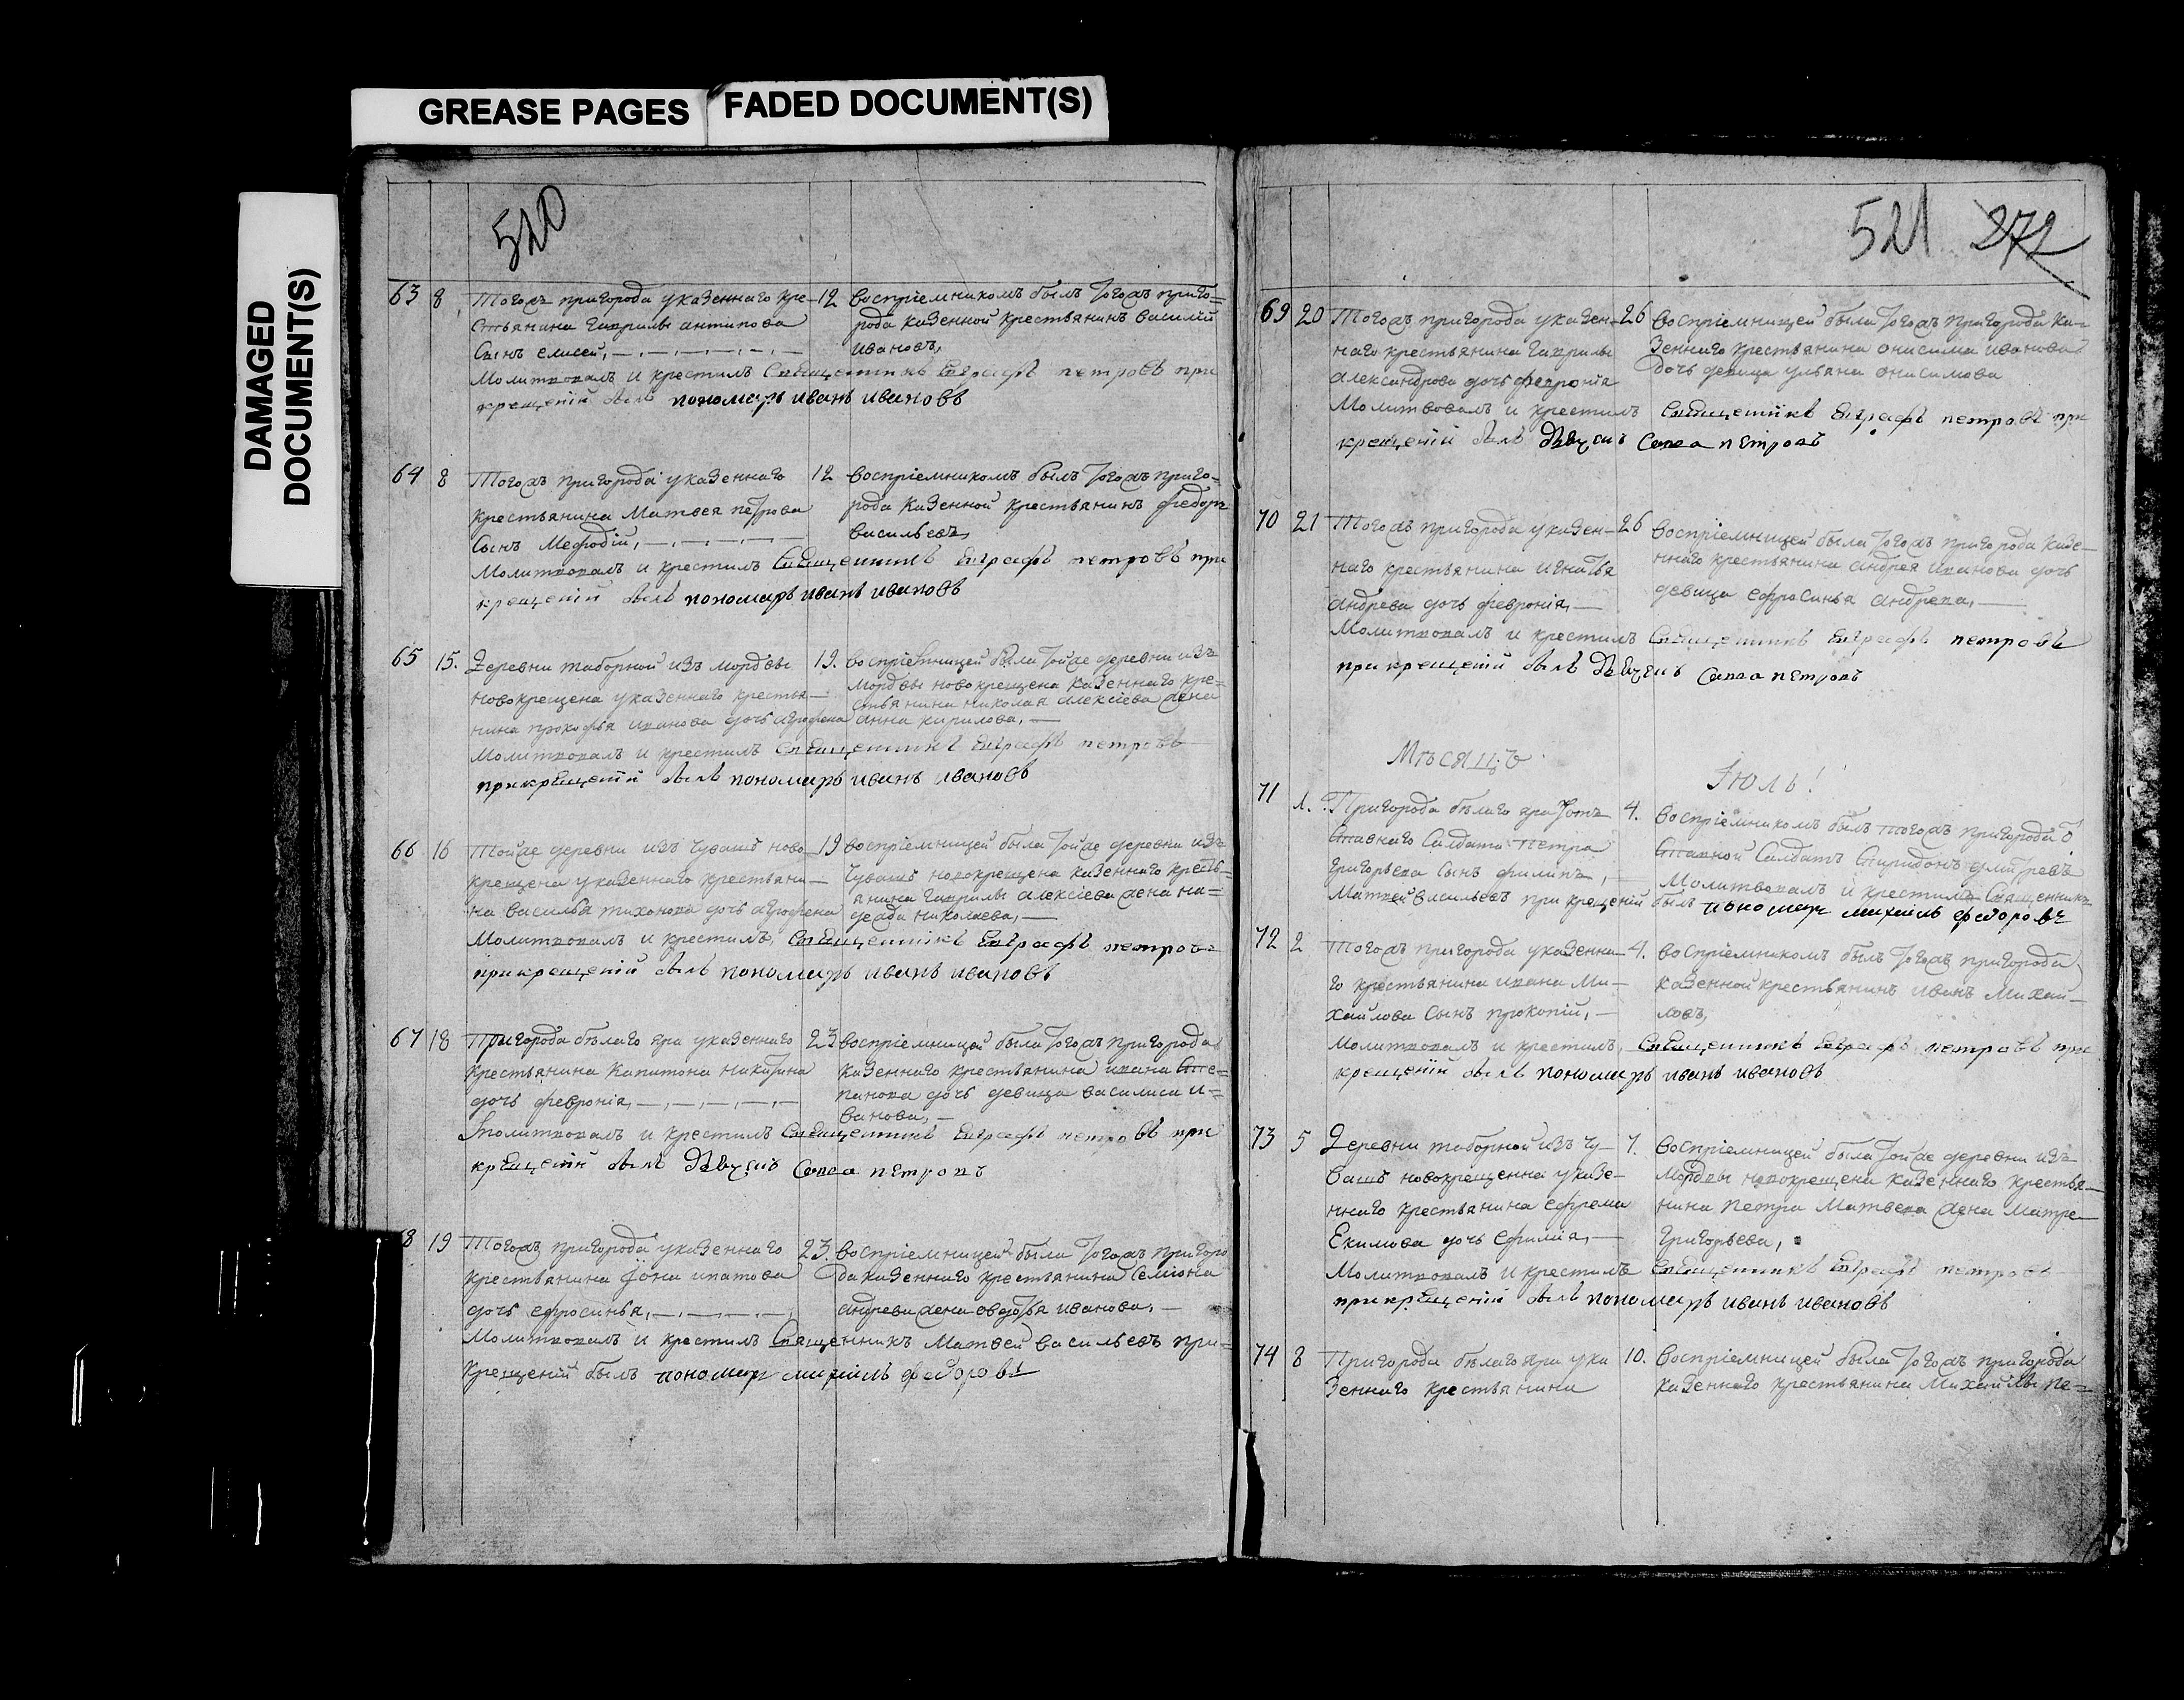 GREASE PAGES
FADED DOCUMENT(S)
DAMAGED
DOCUMENT(S)
520
63 8 Тогожъ пригорода указеннаго кре-
стьянина Гаврилы антипова
Сынъ елисей,
12 восприемникомъ былъ тогожъ приго=
рода казенной крестьянинъ василий
ивановъ,
Молитвовалъ и крестилъ Священникъ Евграфъ петровъ при
крещении былъ пономарь иванъ ивановъ
64 8 Тогожъ пригорода указеннаго
крестьянина Матвея петрова
Сынъ Мефодий,
12 восприемникомъ былъ тогожъ приго-
рода казенной крестьянинъ федоръ
васильевъ,
Молитвовалъ и крестилъ Священникъ Евграфъ петровъ при
крещений былъ пономарь иванъ ивановъ
65 15. Деревни таборной изъ мордвы
новокрещена указеннаго крестья-
нина прокофья иванова дочь агрофена
19. восприемницей была тойже деревни изъ
Мордвы новокрещена казеннаго кре=
стьянина николая алексиева жена
анна кирилова,
Молитвовалъ и крестилъ Священникъ Евграфъ петровъ
при крещений былъ пономарь иванъ ивановъ
66 16 Тойже деревни изъ чувашъ ново-
крещена указеннаго крестьяни-
на василья тихонова дочь агрофена
19 восприемницей была тойже деревни изъ
чувашъ новокрещена казеннаго кресть-
янина Гаврилы алексиева жена на=
дежда николаева,
Молитвовалъ и крестилъ, Священникъ Евграфъ петровъ
при крещений былъ пономарь иванъ ивановъ
67 18 Пригорода бѣлаго яра указеннаго
крестьянина Капитона никитина
дочь феврония,
23 восприемницей была тогожъ пригорода
казеннаго крестьянина ивана Сте=
панова дочь девица василиса и=
ванова,
Молитвовалъ и крестилъ Священникъ Евграфъ петровъ при
крещений былъ дьячекъ Савва петровъ
68 19 Тогожъ пригорода указеннаго
крестьянина иона ипатова
дочь ефросинья,
23. восприемницей была тогожъ пригоро
да казеннаго крестьянина Семиона
андреева жена овдотья иванова,
Молитвовалъ и крестилъ Священникъ Матвей васильевъ при=
крещений былъ пономарь михаилъ федоровъ
521 272
69 20 Тогожъ пригорода указен-
наго крестьянина Гаврилы
александрова дочь феврония
26 восприемницей была тогожъ пригорода ка-
зеннаго крестьянина онисима иванова
дочь девица ульяна онисимова
Молитвовалъ и крестилъ Священникъ Евграфъ петровъ при
крещений былъ дьячекъ Савва петровъ
70 21 Тогожъ пригорода указен-
наго крестьянина игнатья
андрева дочь феврония,
26 восприемницей была тогожъ пригорода казе-
ннаго крестьянина андрея иванова дочь
девица ефросинья андрева,
Молитвовалъ и крестилъ Священникъ Евграфъ петровъ
при крещений былъ дьячекъ Савва петровъ
Мѣсяцъ Июль!
71 1. Пригорода бѣлаго яра от
ставнаго Салдата петра
Григорьева Сынъ филипъ,
4. восприемникомъ былъ тогожъ пригорода о
ставной Салдатъ Спиридонъ дмитревъ
Молитвовалъ и крестилъ Священникъ
Матвей васильевъ при крещений былъ пономарь михаилъ федоровъ
72 2 Тогожъ пригорода указенна-
го крестьянина ивана Ми-
хаилова Сынъ прокопий,
4. восприемникомъ былъ тогожъ пригорода
казенной крестьянинъ иванъ Михаи-
ловъ,
Молитвовалъ и крестилъ, Священникъ Евграфъ петровъ при
крещений былъ пономарь иванъ ивановъ
73 5 Деревни таборной изъ чу-
вашъ новокрещенна указе-
ннаго крестьянина ефрема
Екимова дочь ефимия,
7. восприемницей была тойже деревни изъ
Мордвы новокрещена казеннаго крестья-
нина петра Матвева жена Матре
Григорьева,
Молитвовалъ и крестилъ Священникъ Евграфъ петровъ
при крещений былъ пономарь иванъ ивановъ
74 8 Пригорода бѣлаго яра ука
зеннаго крестьянина
10. восприемницей была тогожъ пригорода
казеннаго крестьянина Михаилы пе=